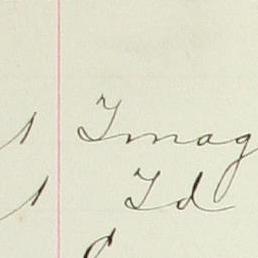 1 Imag
1 Id